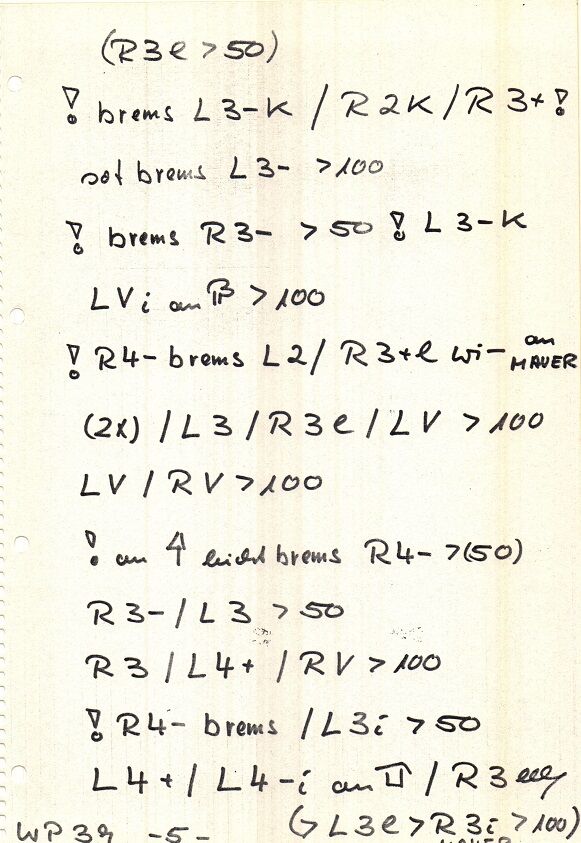 (R3l >50)
! brems L3-K / R2K / R3+ !
sof brems L3- >100
! brems R3- >50 ! L3-K
LVi an >100
! R4- brems L2/ R3+l wi- an MAUER
(2x) / L3 / R3l / LV >100
LV / RV >100
! an leicht brems R4- >(50)
R3- / L3 >50
R3 / L4+ / RV >100
! R4- brems / L3i >50
L4+ / L4-i an / R3
(> L3l > R3i >100)
WP 39 -5- MAUER